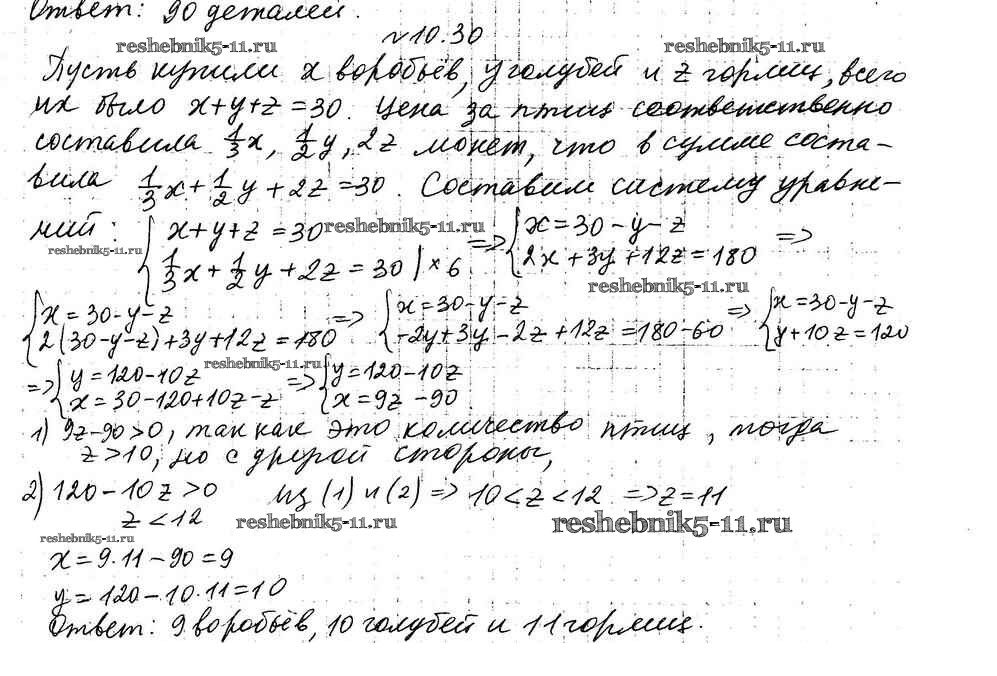 Ответ: 90 деталей.
№10.30
reshebnik5-11.ru reshebnik5-11.ru
Пусть купили x воробьёв, y голубей и z горлиц, всего
их было x+y+z=30. Цена за птиц соответственно
составила 1/3x, 1/2y, 2z монет, что в сумме соста-
вила 1/3x+1/2y+2z=30. Составим систему уравне-
ний: { x+y+z=30 reshebnik5-11.ru => { x=30-y-z =>
reshebnik5-11.ru { 1/3x+1/2y+2z=30 | ×6 { 2x+3y+12z=180
reshebnik5-11.ru
{ x=30-y-z => { x=30-y-z => { x=30-y-z
{ 2(30-y-z)+3y+12z=180 { -2y+3y-2z+12z=180-60 { y+10z=120
=> { y=120-10z reshebnik5-11.ru => { y=120-10z
{ x=30-120+10z-z { x=9z-90
1) 9z-90>0, так как это количество птиц, тогда
z>10, но с другой стороны,
2) 120-10z>0 из (1) и (2) => 10<z<12 => z=11
z<12 reshebnik5-11.ru reshebnik5-11.ru
reshebnik5-11.ru
x=9·11-90=9
y=120-10·11=10
Ответ: 9 воробьёв, 10 голубей и 11 горлиц.